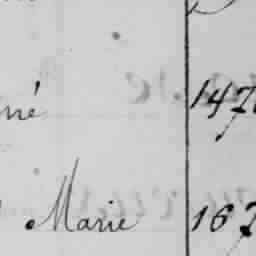 né 147
Marie 167